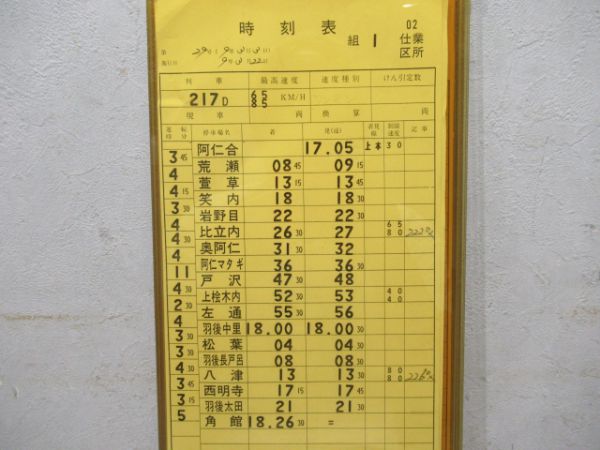 時刻表
02
組 1
仕業
区所
列車 最高速度 速度種別 けん引定数
217D 65 85 KM/H
現車 両 換算 両
運転時分 停車場名 着 発(通) 着発線 制限速度 記事
阿仁合 17.05 上本 30
3 45
荒瀬 08 45 09 15
4
萱草 13 15 13 45
4 15
笑内 18 18 30
3 30
岩野目 22 22 30
4
比立内 26 30 27 65 80
4 30
奥阿仁 31 30 32
4
阿仁マタギ 36 36 30
11
戸沢 47 30 48
4 30
上桧木内 52 30 53 40 40
2 30
左通 55 30 56
4
羽後中里 18.00 18.00 30
3 30
松葉 04 04 30
3 30
羽後長戸呂 08 08 30
4 30
八津 13 13 30 80 80
3 45
西明寺 17 15 17 45
3 15
羽後太田 21 21 30
5
角館 18.26 30 =